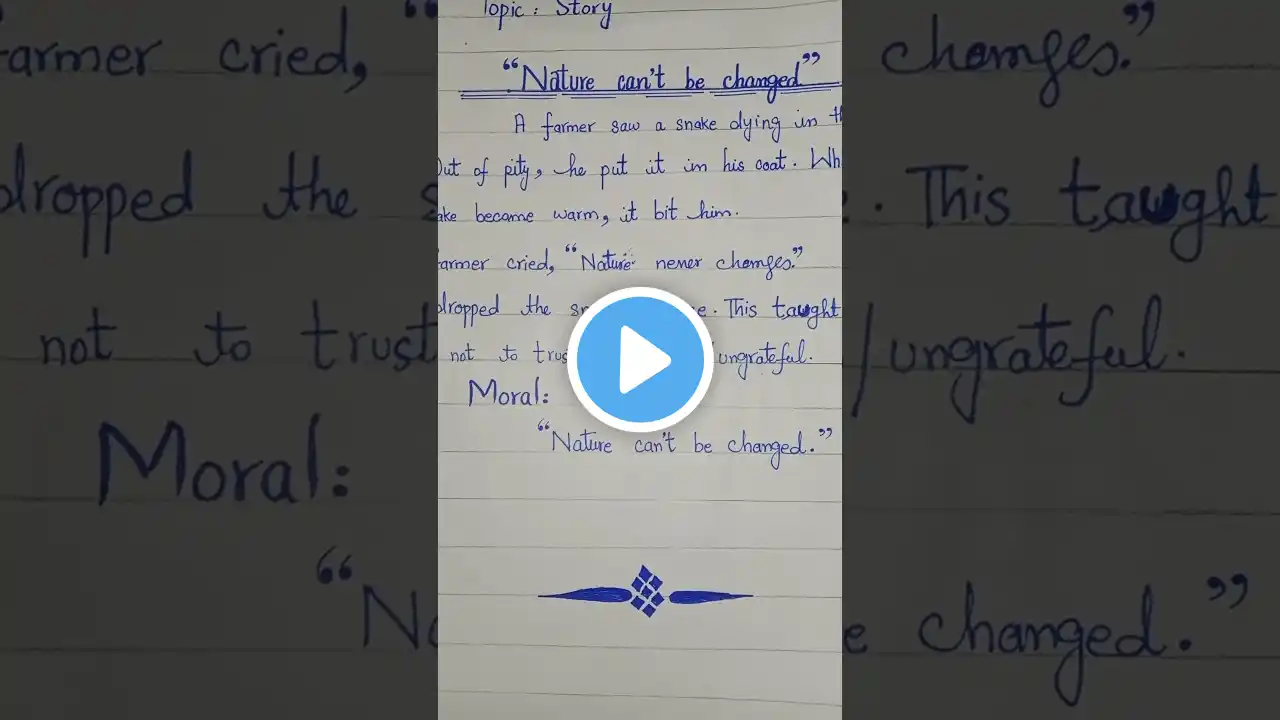 Topic : Story
"Nature can't be changed"
A farmer saw a snake dying in th
Out of pity, he put it in his coat. Wh
ake became warm, it bit him.
armer cried, "Nature never changes."
dropped the sn e. This taught
not to trus /ungrateful.
Moral:
"Nature can't be changed."